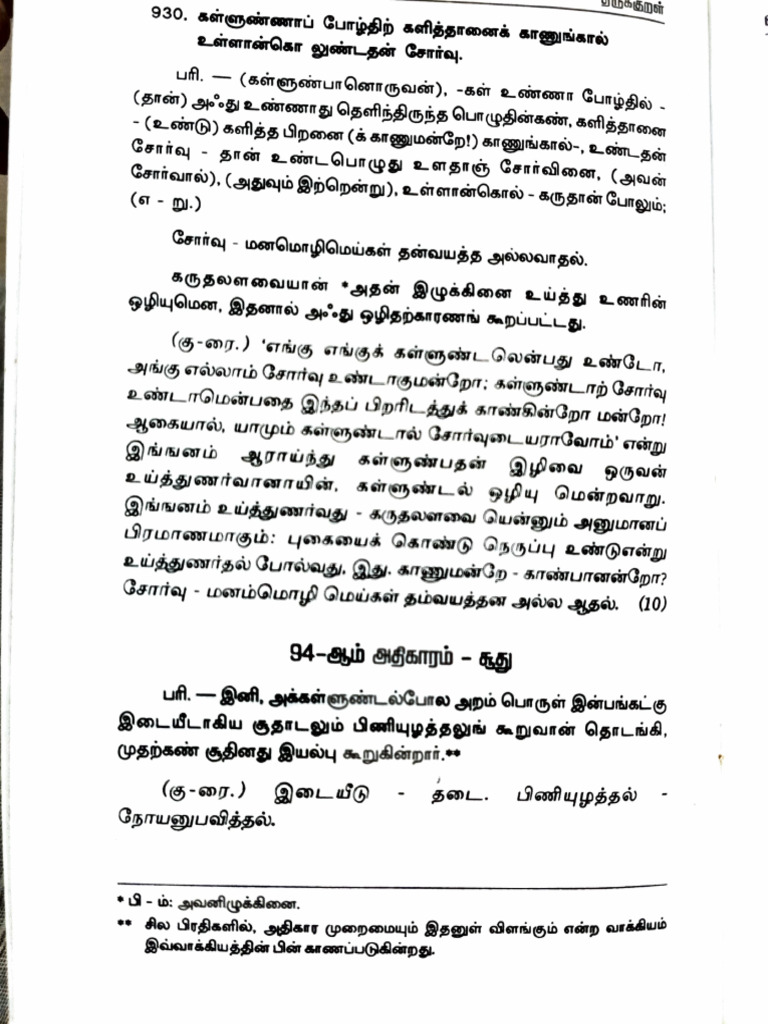 திருக்குறள்
930. கள்ளுண்ணாப் போழ்திற் களித்தானைக் காணுங்கால்
உள்ளான்கொ லுண்டதன் சோர்வு.
பரி. — (கள்ளுண்பானொருவன்), -கள் உண்ணா போழ்தில் -
(தான்) அஃது உண்ணாது தெளிந்திருந்த பொழுதின்கண், களித்தானை
- (உண்டு) களித்த பிறனை (க் காணுமன்றே!) காணுங்கால்-, உண்டதன்
சோர்வு - தான் உண்டபொழுது உளதாஞ் சோர்வினை, (அவன்
சோர்வால்), (அதுவும் இற்றென்று), உள்ளான்கொல் - கருதான் போலும்;
(எ - று.)
சோர்வு - மனமொழிமெய்கள் தன்வயத்த அல்லவாதல்.
கருதலளவையான் *அதன் இழுக்கினை உய்த்து உணரின்
ஒழியுமென, இதனால் அஃது ஒழிதற்காரணங் கூறப்பட்டது.
(கு-ரை.) 'எங்கு எங்குக் கள்ளுண்டலென்பது உண்டோ,
அங்கு எல்லாம் சோர்வு உண்டாகுமன்றோ; கள்ளுண்டாற் சோர்வு
உண்டாமென்பதை இந்தப் பிறரிடத்துக் காண்கின்றோ மன்றோ!
ஆகையால், யாமும் கள்ளுண்டால் சோர்வுடையராவோம்' என்று
இங்ஙனம் ஆராய்ந்து கள்ளுண்பதன் இழிவை ஒருவன்
உய்த்துணர்வானாயின், கள்ளுண்டல் ஒழியு மென்றவாறு.
இங்ஙனம் உய்த்துணர்வது - கருதலளவை யென்னும் அனுமானப்
பிரமாணமாகும்: புகையைக் கொண்டு நெருப்பு உண்டுஎன்று
உய்த்துணர்தல் போல்வது, இது. காணுமன்றே - காண்பானன்றோ?
சோர்வு - மனம்மொழி மெய்கள் தம்வயத்தன அல்ல ஆதல். (10)
94-ஆம் அதிகாரம் - சூது
பரி. — இனி, அக்கள்ளுண்டல்போல அறம் பொருள் இன்பங்கட்கு
இடையீடாகிய சூதாடலும் பிணியுழத்தலுங் கூறுவான் தொடங்கி,
முதற்கண் சூதினது இயல்பு கூறுகின்றார்.**
(கு-ரை.) இடையீடு - தடை. பிணியுழத்தல் -
நோயனுபவித்தல்.
* பி - ம்: அவனிழுக்கினை.
** சில பிரதிகளில், அதிகார முறைமையும் இதனுள் விளங்கும் என்ற வாக்கியம்
இவ்வாக்கியத்தின் பின் காணப்படுகின்றது.